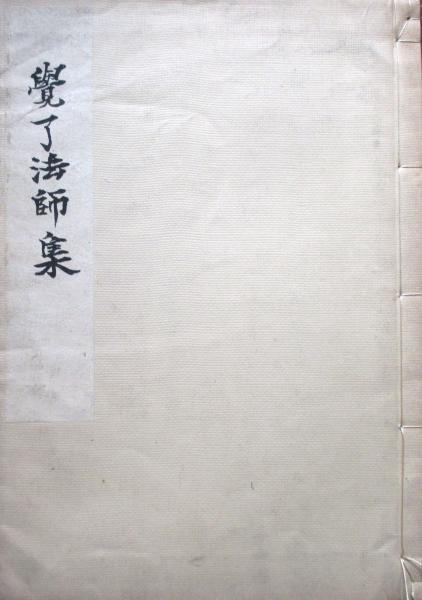 覺了法師集